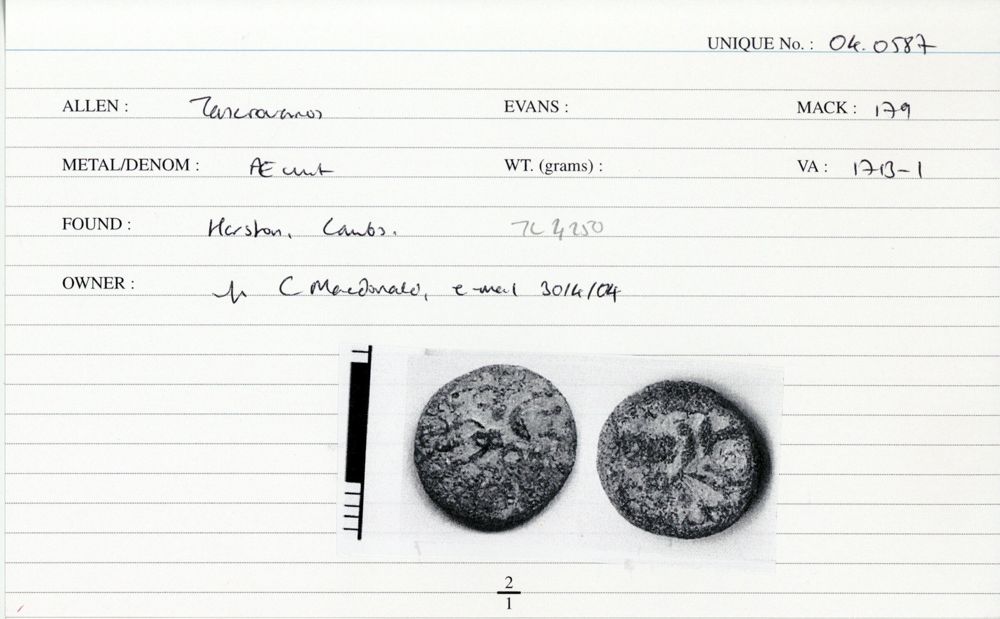 UNIQUE No. : 04.0587
ALLEN : Tasciovanos EVANS : MACK : 179
METAL/DENOM : Æ unit WT. (grams) : VA : 1713-1
FOUND : Harston, Cambs. TL 4250
OWNER : C Macdonald, e-mail 30/4/04
2
1